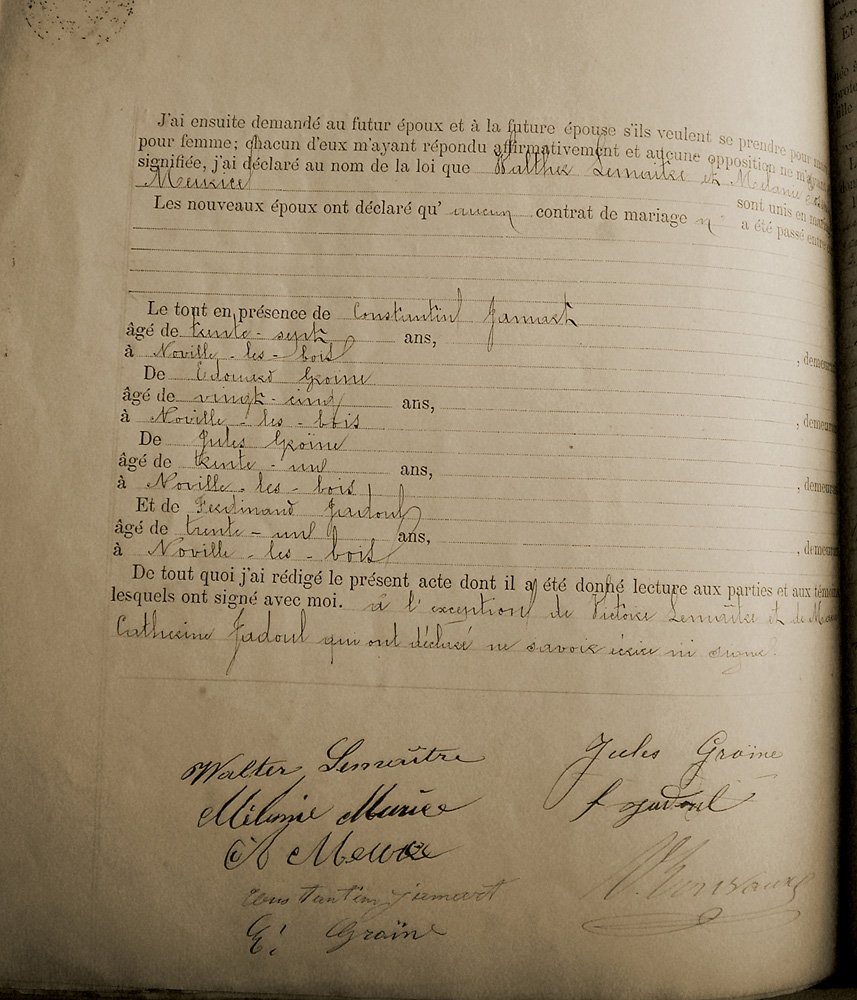 J'ai ensuite demandé au futur époux et à la future épouse s'ils veulent se prendre pour
pour femme; chacun d'eux m'ayant répondu affirmativement et aucune opposition ne m'ayant
signifiée, j'ai déclaré au nom de la loi que Walther Lemaitre et Mélanie
Meurice sont unis en
Les nouveaux époux ont déclaré qu' aucun contrat de mariage n' a été passé entre
Le tout en présence de Constantin Jamart
âgé de trente-sept ans, , demeurant
à Noville-les-bois
De Edouard Groïne
âgé de vingt-cinq ans, , demeurant
à Noville-les-bois
De Jules Groïne
âgé de trente-un ans, , demeurant
à Noville-les-bois
Et de Ferdinand Jadoul
âgé de trente-un ans, , demeurant
à Noville-les-bois
De tout quoi j'ai rédigé le présent acte dont il a été donné lecture aux parties et aux témoins
lesquels ont signé avec moi. à l'exception de Victoire Lemaître et de
Catherine Jadoul qui ont déclaré ne savoir écrire ni signer.
Walter Lemaître
Jules Groïne
Mélanie Murice
f jadoul
Constantin jamart
E. Groïne